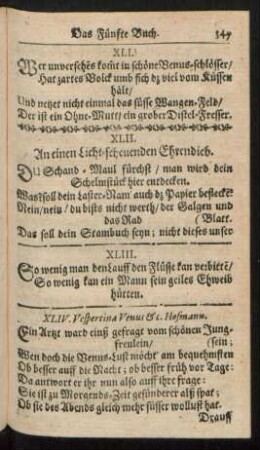 Das Fünfte Buch. 347
XLI.
Wer unversehns komt in schöne Venus-schlösser/
Hat zartes Volck umb sich dz viel vom Küssen
hält/
Und netzet nicht einmal das süsse Wangen-Feld/
Der ist ein Ohne-Mutt/ ein grober Distel-Fresser.
XLII.
An einen Licht-scheuenden Ehrendieb.
DU Schand-Maul fürchst/ man wird dein
Schelmstück hier entdecken.
Was? soll dein Laster-Nam' auch dz Papier beflecken?
Nein/ nein/ du bists nicht werth/ der Galgen und
das Rad (Blatt.
Das soll dein Stambuch seyn; nicht dieses unser
XLIII.
SO wenig man den Lauff den Flüssē kan verbittē/
So wenig kan ein Mann sein geiles Ehweib
hütten.
XLIV. Vespertina Venus &c. Hofmann.
EIn Artzt ward einst gefragt vom schönen Jung-
freulein/ (sein;
Wen doch die Venus-Lust möcht' am bequehmsten
Ob besser auff die Nacht; ob besser früh vor Tage:
Da antwort er ihr nun also auff ihre frage:
Sie ist zu Morgends-Zeit gesünderer alß spat;
Ob sie des Abends gleich mehr süsser wollust hat.
Drauff